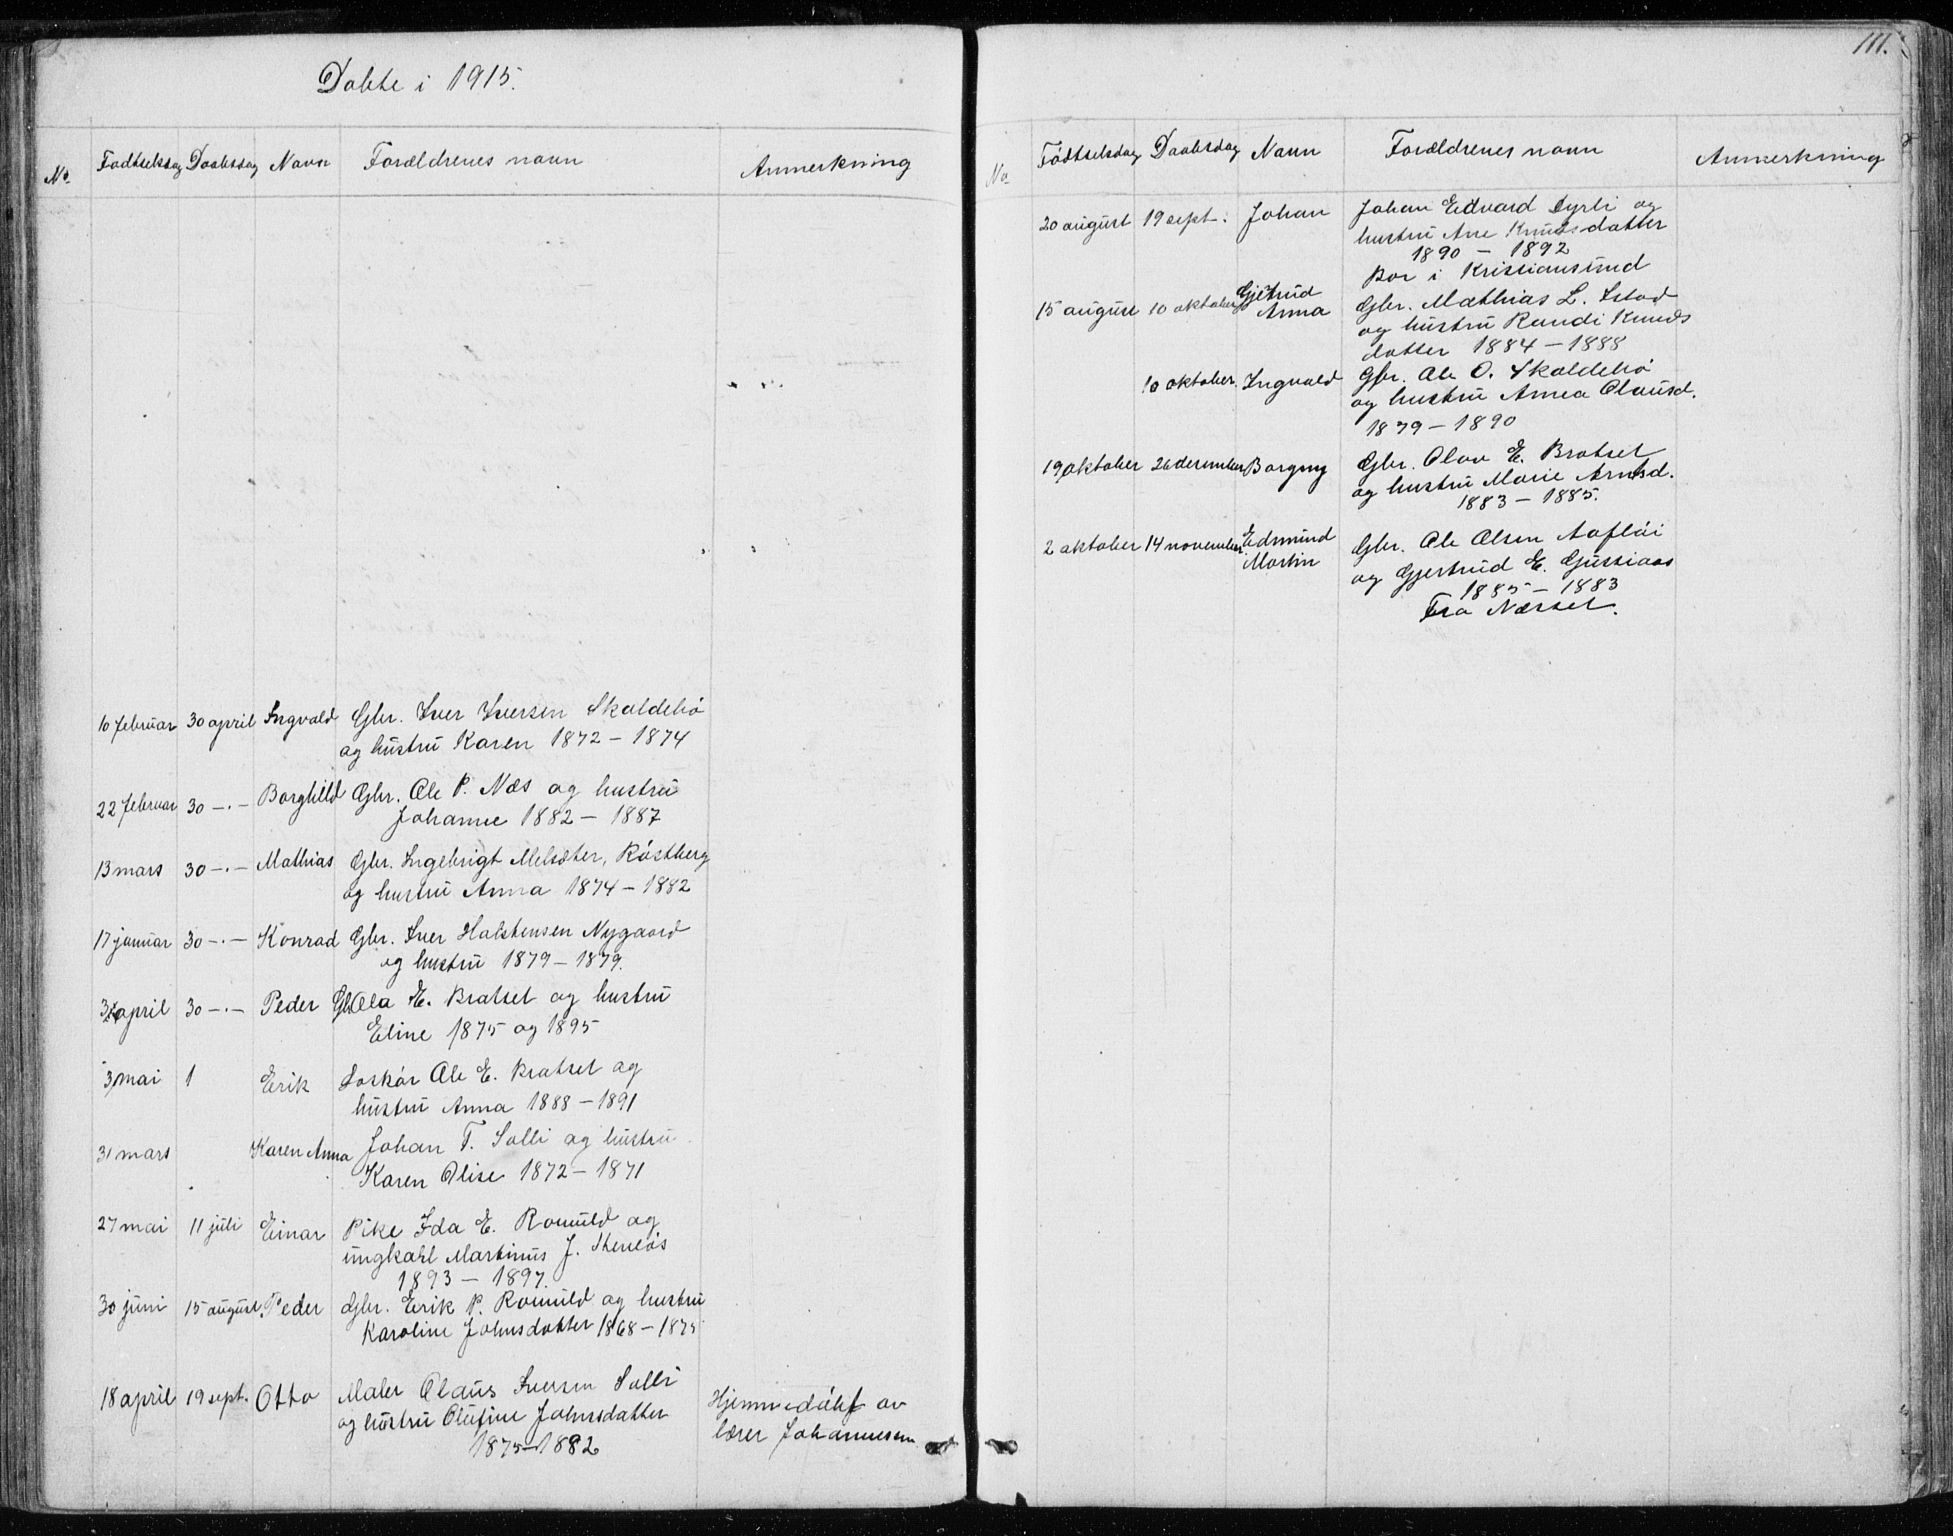 Døbte i 1915.
No. Fødtselsdag Daabsdag Navn Forældrenes navn Anmerkning
10 februar 30 april Ingvald Gbr. Iver Iversen Skaldehø
og hustru Karen 1872 – 1874
22 februar 30 –·– Borghild Gbr. Ole P. Næs og hustru
Johanne 1882 – 1887
13 mars 30 –·– Mathias Gbr. Ingebrigt Melsæter, Røstberg
og hustru Anna 1874 – 1882
17 januar 30 –·– Konrad Gbr. Iver Halstensen Nygaard
og hustru 1879 – 1879.
april 30 –·– Peder Gbr. Ola E. Bratset og hustru
Eline 1875 og 1895
3 mai 1 Erik Ole E. Bratset og
hustru Anna 1888 – 1891
31 mars Karen Anna Johan T. Solli og hustru
Karen Olise 1872 – 1871
27 mai 11 juli Einar Pike Ida E. Romuld og
ungkarl Martinus J.
1893 – 1897.
30 juni 15 august. Peder Gbr. Erik P. Romuld og hustru
Karoline Johnsdatter 1868 – 1875
18 april 19 sept. Otto Maler Olaus Iversen Solli
og hustru Olufine Johnsdatter
1875 – 1882
Hjemmedøbt av
lærer Johannesen
111.
No Fødtselsdag Daabsdag Navn Forældrenes navn Anmerkning
20 august 19 sept. Johan Johan Edvard Dyrli og
hustru Ane Knudsdatter
1890 – 1892
Bor i Kristiansund
15 august 10 oktober Gjetrud
Anna Gbr. Mathias L. Istad
og hustru Randi Knuds
datter 1884 – 1888
10 oktober. Ingvald Gbr. Ole O. Skaldehø
og hustru Annea Olausd.
1879 – 1890
19 oktober 26 desember Borgny Gbr. Olav E. Bratset
og hustru Marie Arntsd.
1883 – 1885.
2 oktober 14 november Edmund
Martin Gbr. Ole Olsen Aafløi
og Gjertrud E. Gussiaas
1885 – 1883
Fra Nesset.